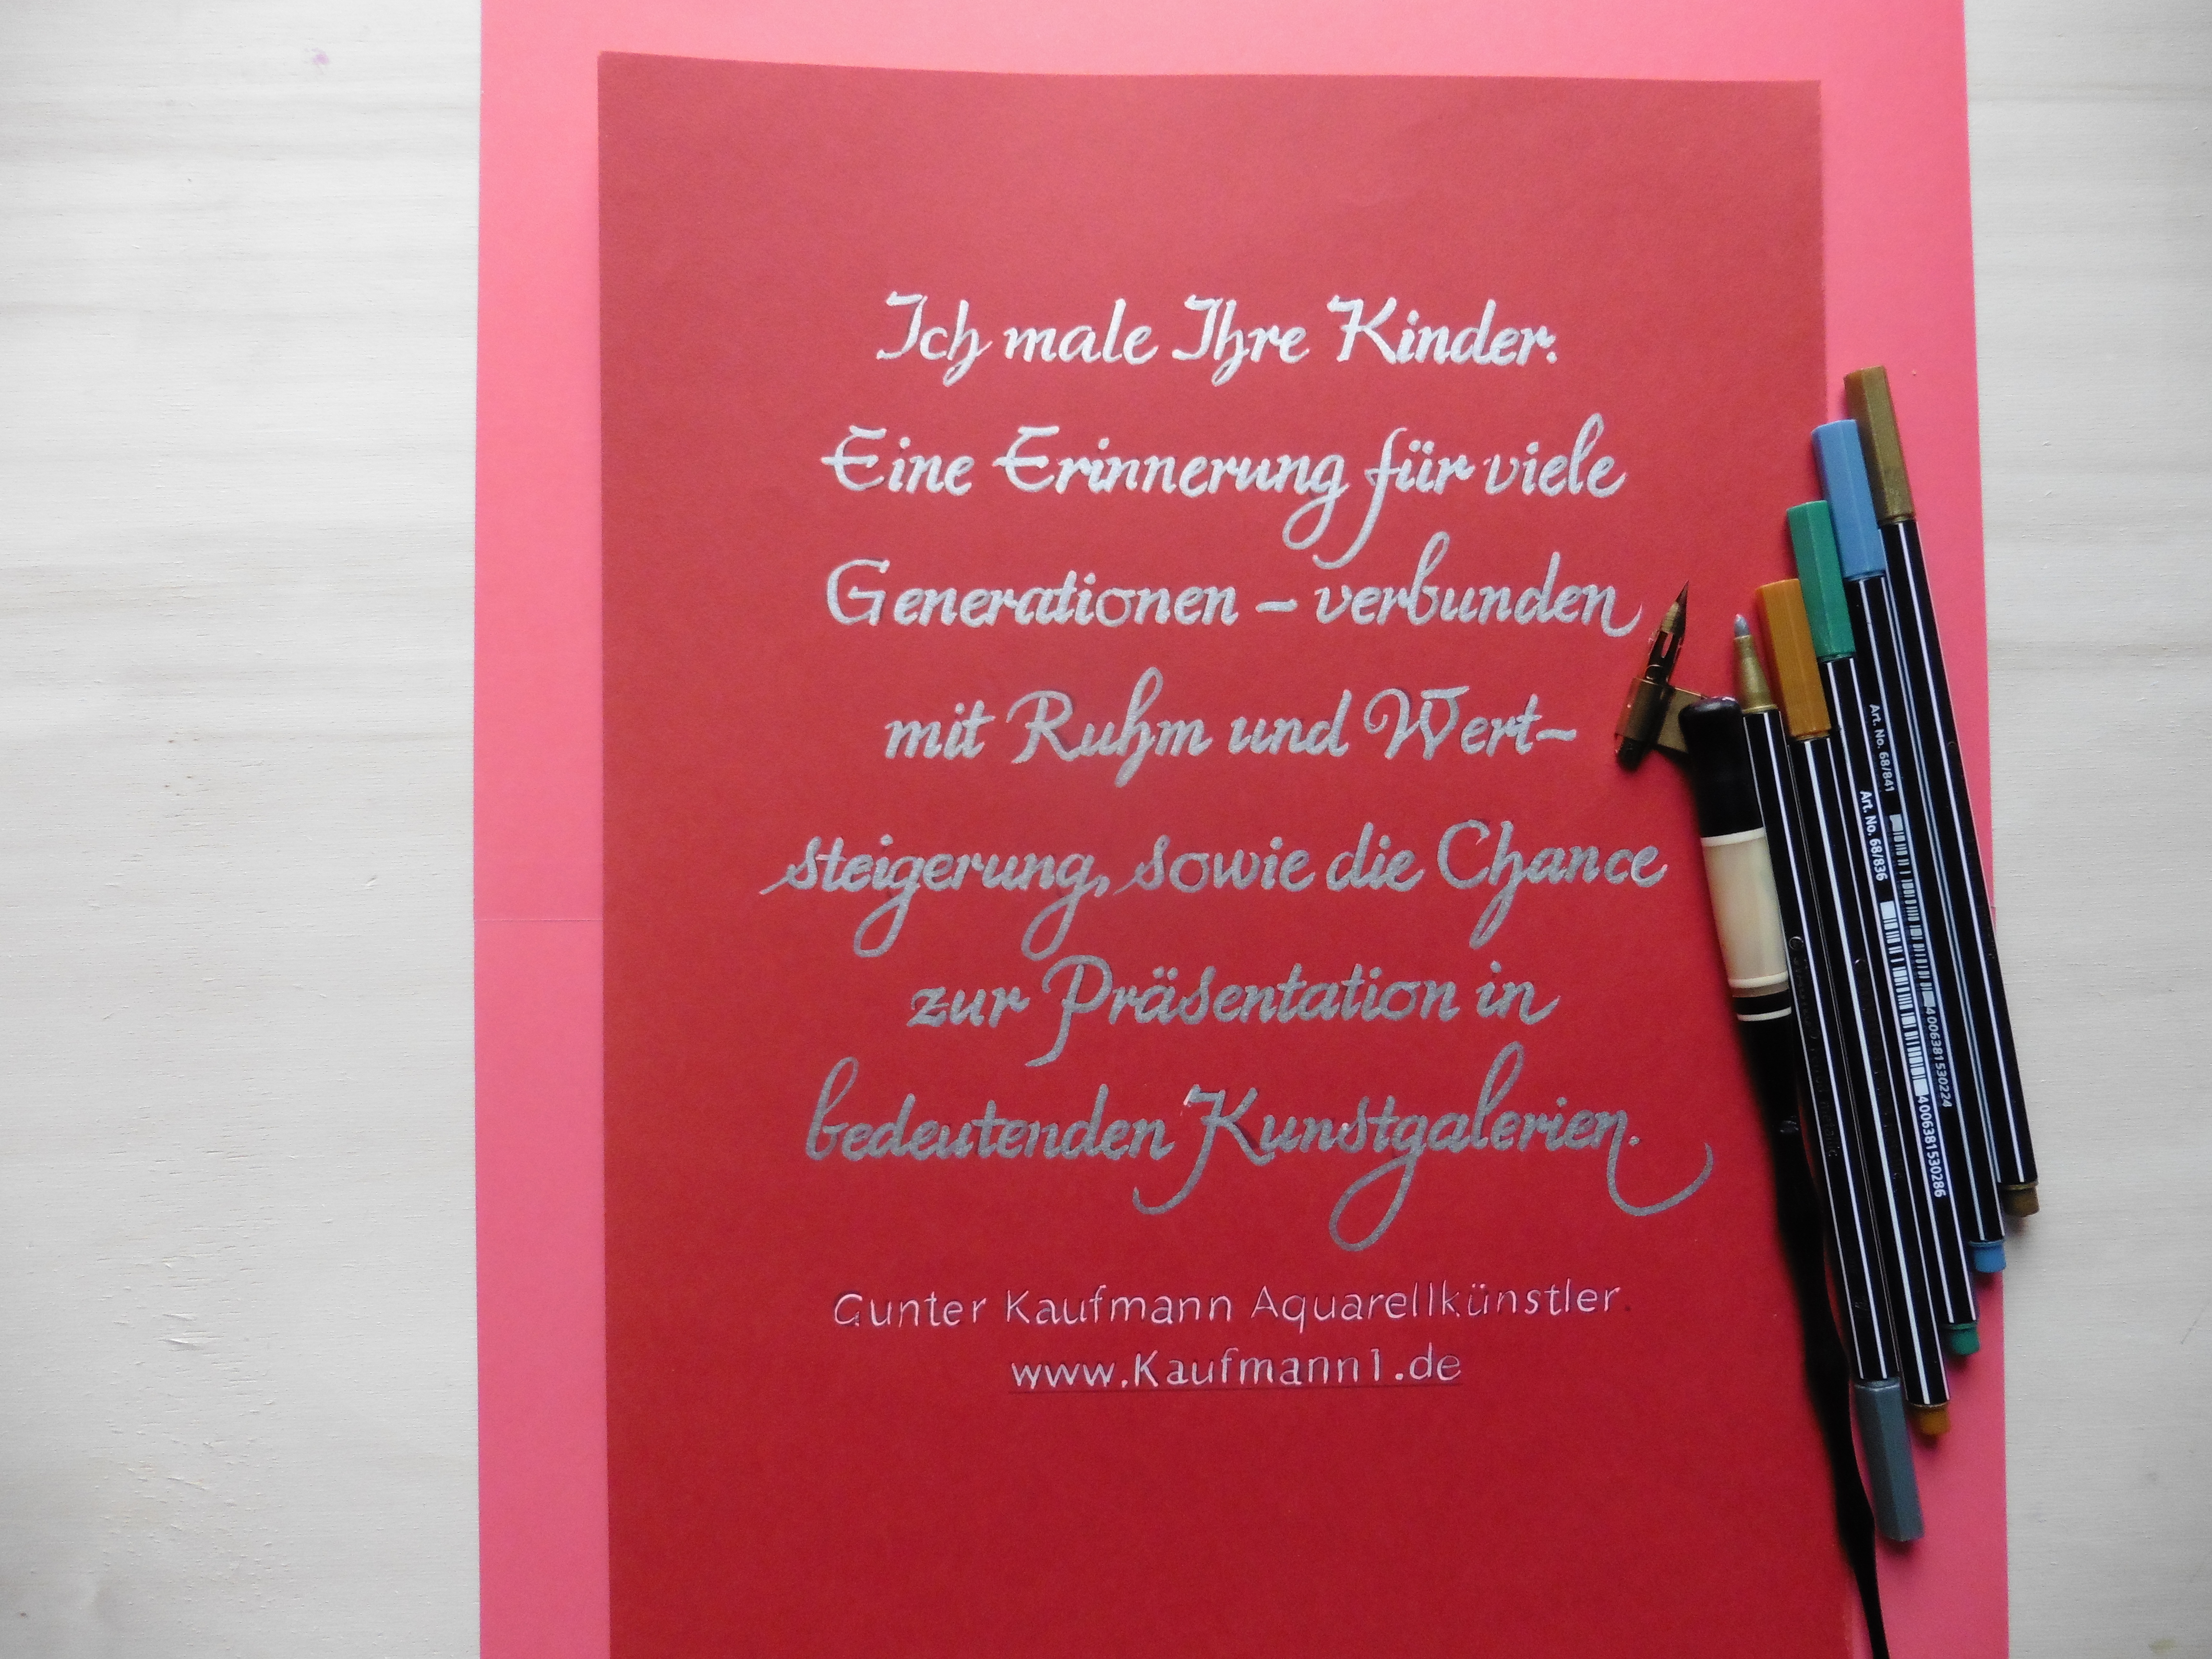 Ich male Ihre Kinder.
Eine Erinnerung für viele
Generationen – verbunden
mit Ruhm und Wert-
steigerung, sowie die Chance
zur Präsentation in
bedeutenden Kunstgalerien.
Gunter Kaufmann Aquarellkünstler
www.Kaufmann1.de
Art. No. 68/841
4006381530224
Art. No. 68/836
4006381530286